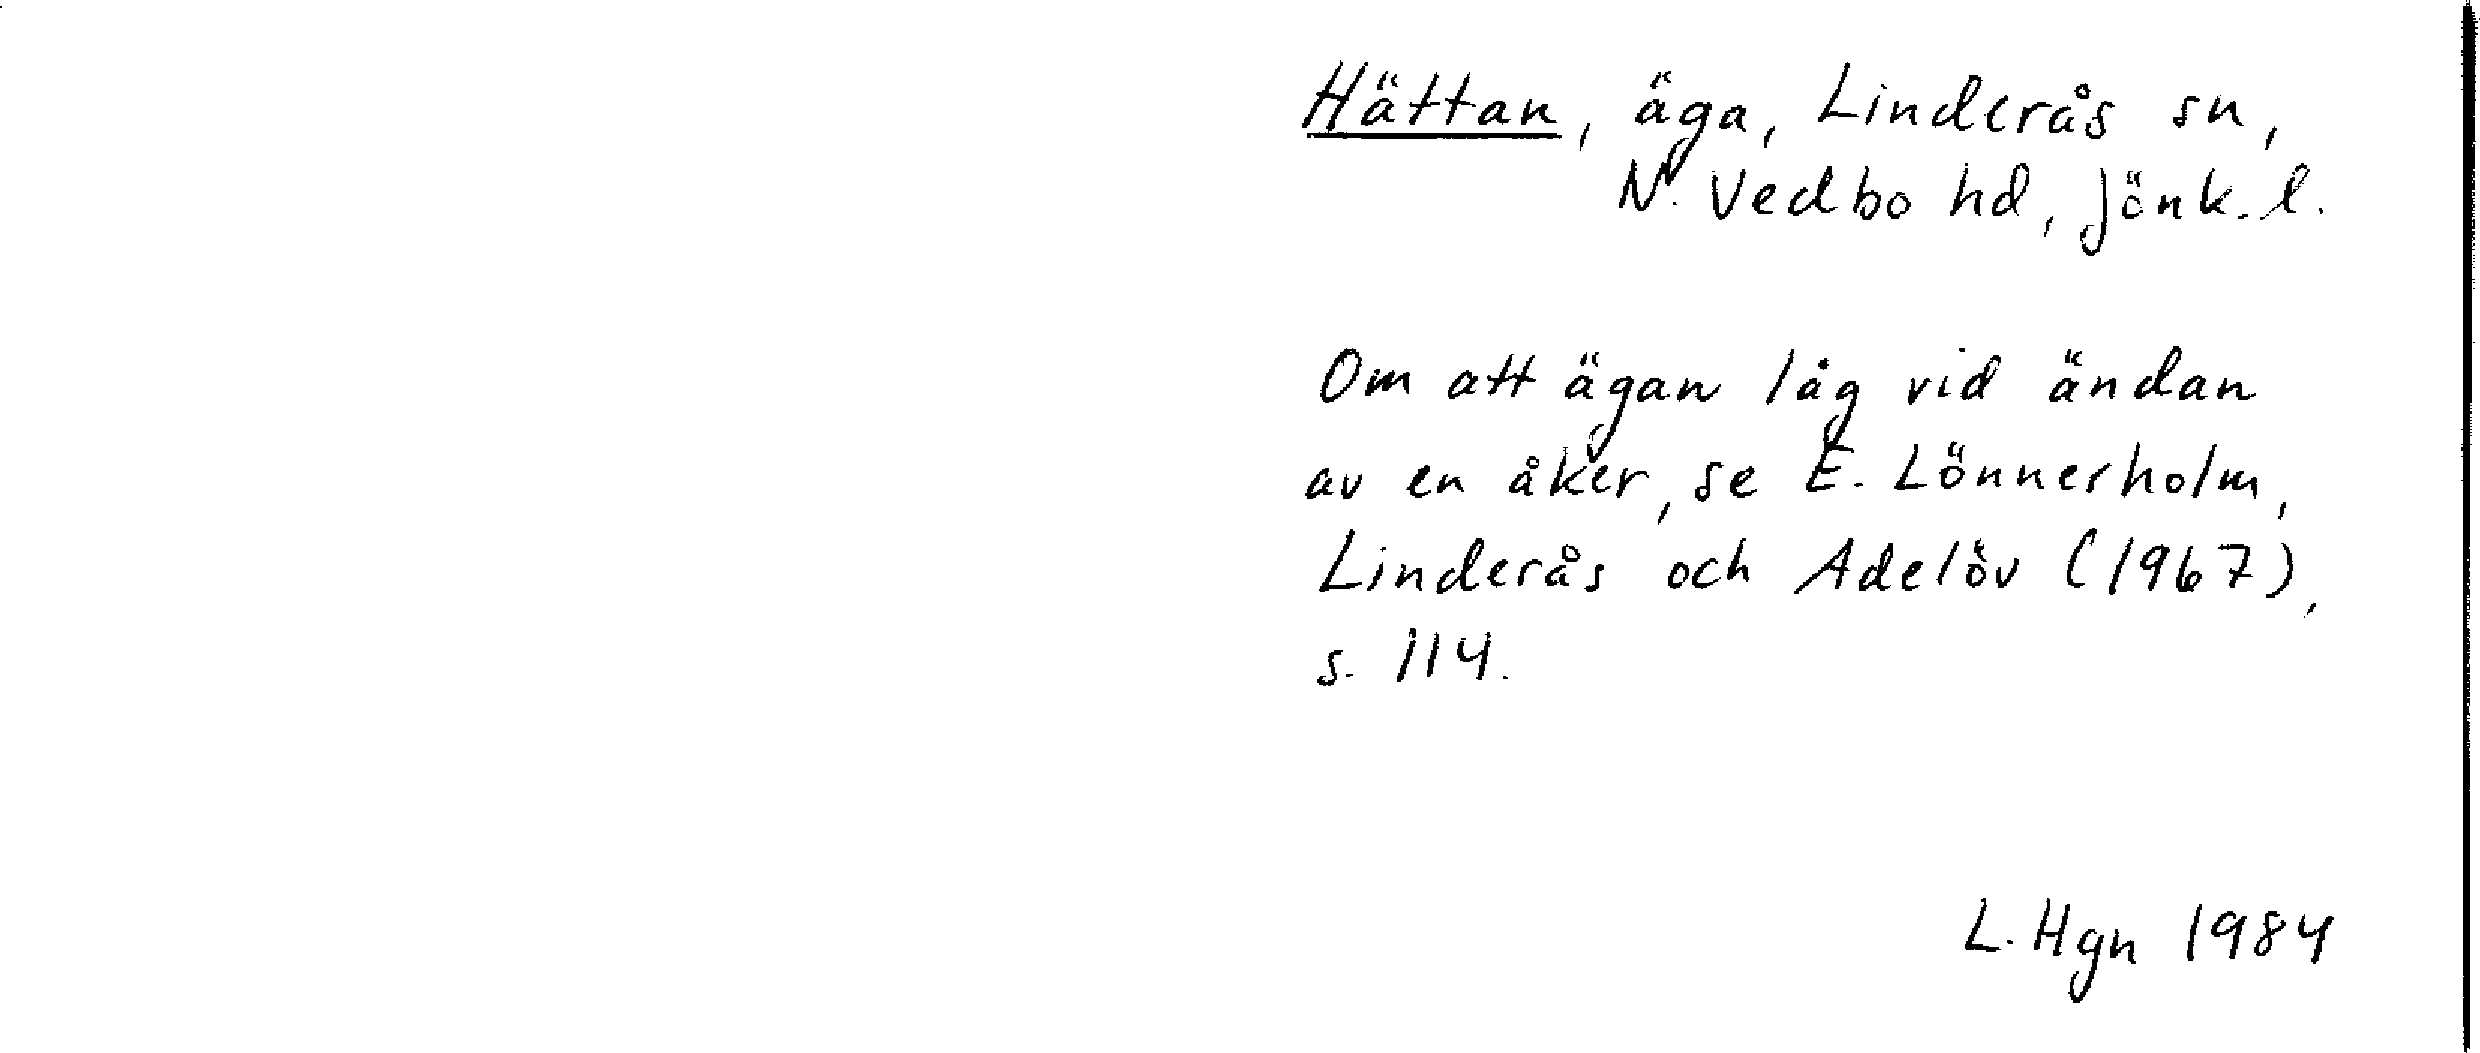 Hättan, äga, Linderås sn,
N. Vedbo hd, Jönk. l.
Om att ägan låg vid ändan
av en åker, se E. Lönnerholm,
Linderås och Adelöv (1967),
s. 114.
L. Hgn 1984